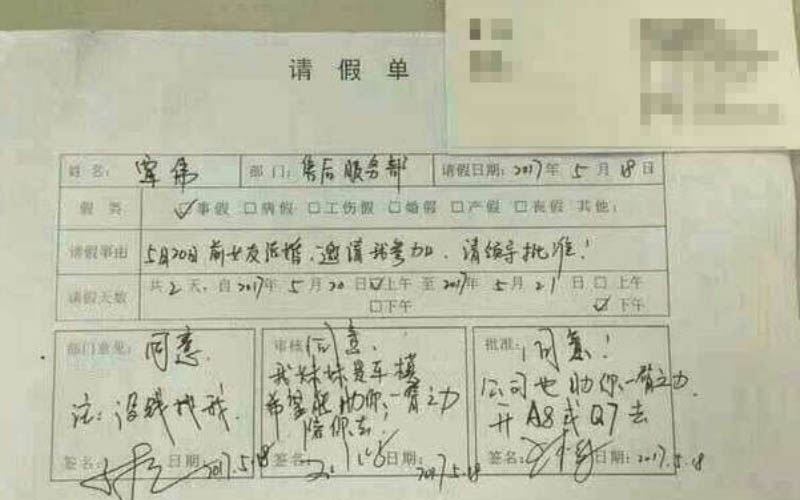 请假单
姓名: 军伟 部门: 售后服务部 请假日期: 2017年5月18日
假类 ☑事假 □病假 □工伤假 □婚假 □产假 □丧假 其他:
请假事由 5月20日前女友结婚.邀请我参加.请领导批准!
请假天数 共2天,自2017年5月20日☑上午 □下午 至2017年5月21日□上午 ☑下午
部门意见: 同意.
注:没钱找我.
签名: 日期: 2017.5.18
审核 同意.
我妹妹是车模
希望能助你一臂之力
陪你去.
签名: 日期: 2017.5.18
批准: 同意!
公司也助你一臂之力.
开A8或Q7去
签名: 日期: 2017.5.18